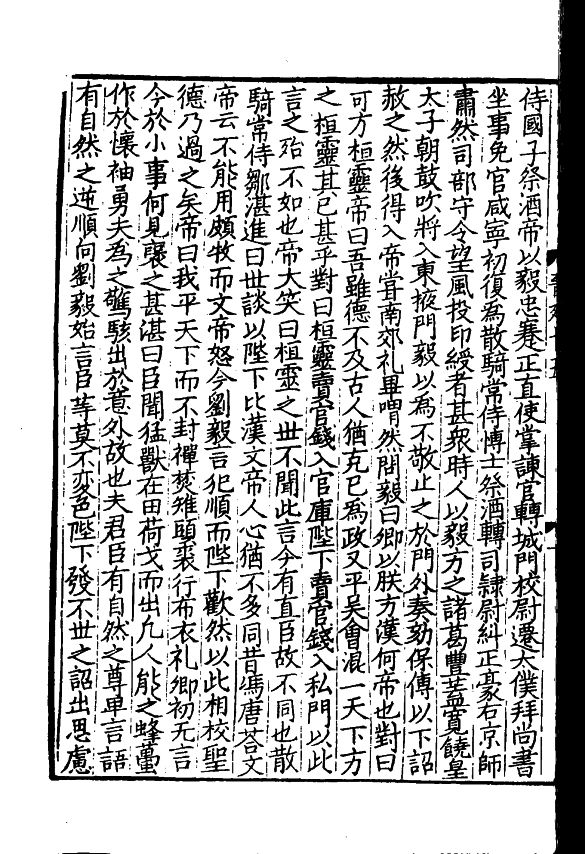 侍國子祭酒帝以毅忠蹇正直使掌諫官轉城門校尉遷太僕拜尚書
坐事免官咸寧初復為散騎常侍博士祭酒轉司隷尉糾正豪右京師
肅然司部守令望風投印綬者甚衆時人以毅方之諸葛豐蓋寬饒皇
太子朝鼓吹將入東掖門毅以為不敬止之於門外奏劾保傅以下詔
赦之然後得入帝甞南郊礼畢喟然問毅曰卿以朕方漢何帝也對曰
可方桓靈帝曰吾雖德不及古人猶克己為政又平吳會混一天下方
之桓靈其已甚乎對曰桓靈賣官錢入官庫陛下賣官錢入私門以此
言之殆不如也帝大笑曰桓靈之世不聞此言今有直臣故不同也散
騎常侍鄒湛進曰世談以陛下比漢文帝人心猶不多同昔馮唐荅文
帝云不能用頗牧而文帝怒今劉毅言犯順而陛下歡然以此相校聖
德乃過之矣帝曰我平天下而不封禪焚雉頭裘行布衣礼卿初无言
今於小事何見襃之甚湛曰臣聞猛獸在田荷戈而出凢人能之蜂蠆
作於懷袖勇夫為之驚駭出於意外故也夫君臣有自然之尊卑言語
有自然之逆順向劉毅始言臣等莫不変色陛下發不世之詔出思慮